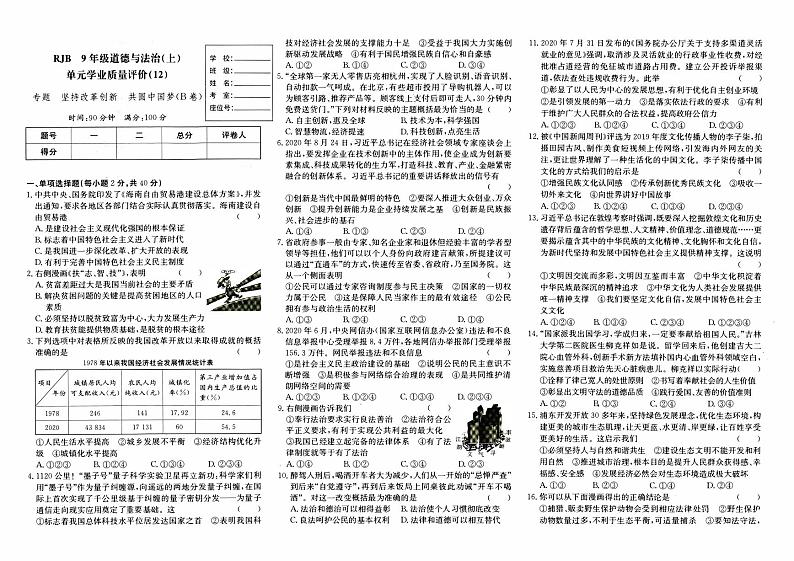 RJB 9年级道德与法治(上)
单元学业质量评价(12)
专题 坚持改革创新 共圆中国梦(B卷)
时间:90分钟 满分:100分
学校:
班级:
姓名:
考室:
座位号:
题号 一 二 总分 评卷人
得分
一、单项选择题(每小题2分,共40分)
1.中共中央、国务院印发了《海南自由贸易港建设总体方案》,并发
出通知,要求各地区各部门结合实际认真贯彻落实。海南建设自
由贸易港 ( )
A.是建设社会主义现代化强国的根本保证
B.标志着中国特色社会主义进入了新时代
C.是我国进一步深化改革、扩大开放的表现
D.有利于完善中国特色社会主义民主制度
2.右侧漫画(扶“志、智、技”),表明 ( )
A.贫富差距过大是我国当前社会的主要矛盾
B.解决贫困问题的关键是提高贫困地区的人口
素质
C.必须坚持以脱贫致富为中心,大力发展生产力
D.教育扶贫能提供物质基础,是脱贫的根本途径
3.下列选项中对表格所反映的我国改革开放以来取得成就的概括
准确的是 ( )
1978年以来我国经济社会发展情况统计表
项目 年份 城镇居民人均可支配收入(元) 农民人均纯收入(元) 城镇化率(%) 第三产业增加值占国内生产总值的比重(%)
1978 246 141 17.92 24.6
2020 43 834 17 131 60 54.5
①人民生活水平提高 ②城乡发展不平衡 ③经济结构优化升
级 ④城镇化水平提高
A.①②③ B.①②④ C.①③④ D.②③④
4.1120公里!“墨子号”量子科学实验卫星再立新功:科学家们利
用“墨子号”作为量子纠缠源,向遥远的两地分发量子纠缠,在国
际上首次实现了千公里级基于纠缠的量子密钥分发——为量子
通信走向现实应用奠定了重要基础。这 ( )
①标志着我国总体科技水平位居发达国家之首 ②表明我国科
技对经济社会发展的支撑能力十足 ③受益于我国大力实施创
新驱动发展战略 ④有利于国民增强民族自信心和自豪感
A.①② B.①③ C.②④ D.③④
5.“全球第一家无人零售店亮相杭州,实现了人脸识别、语音识别、
自动扣款一气呵成。在北京,有些超市投用了导购机器人,可以
为顾客引路、推荐产品等。顾客线上支付后即可走人,30分钟内
免费送货。”下列对材料反映的主题概括最为恰当的是 ( )
A.自主创新,惠及全球 B.技术为本,科学强国
C.智慧物流,经济提速 D.科技创新,点亮生活
6.2020年8月24日,习近平总书记在经济社会领域专家座谈会上
指出,要发挥企业在技术创新中的主体作用,使企业成为创新要
素集成、科技成果转化的生力军,打造科技、教育、产业、金融紧密
融合的创新体系。习近平总书记的重要讲话释放出的信号有
( )
①创新是当代中国最鲜明的特色 ②要深入推进大众创业、万众
创新 ③提升创新能力是企业持续发展之基 ④创新是民族振
兴、社会进步的基石
A.①③ B.①④ C.②③ D.②④
7.省政府参事一般由专家、知名企业家和退休但经验丰富的学者型
领导等担任,他们可以以个人身份向政府建言献策,所提建议可
以通过“直通车”的方式,快速传至省委、省政府,乃至国务院。这
从一个侧面表明 ( )
①公民可以通过专家咨询制度参与民主决策 ②国家的一切权
力属于公民 ③这是保障人民当家作主的最有效途径 ④公民
拥有参与政治生活的权利
A.①③ B.②④ C.①④ D.②③
8.2020年6月,中央网信办(国家互联网信息办公室)违法和不良
信息举报中心受理举报8.4万件,各地网信办举报部门受理举报
156.3万件。网民举报违法和不良信息 ( )
①是社会主义民主政治建设的基础 ②说明公民的民主意识不
断增强 ③是积极参与网络综合治理的表现 ④是共同维护清
朗网络空间的需要
A.①②③ B.①②④ C.①③④ D.②③④
9.右侧漫画告诉我们 ( )
①奉行法治要求实行良法善治 ②法治符合公
平正义要求,有利于实现公共利益的最大化
③我国已经建立起完备的法律体系 ④有了法
律制度就等于有了法治
A.①② B.①③ C.②④ D.③④
10.醉驾入刑后,喝酒开车者大为减少,人们从一开始的“忌惮严查”
到后来“自觉遵守”,再到后来饭局上同桌彼此劝诫“开车不喝
酒”。对这一改变概括最为准确的是 ( )
A.法治和德治可以相得益彰 B.法治使个人习惯彻底改变
C.良法呵护公民的基本权利 D.法律和道德可以相互替代
11.2020年7月31日发布的《国务院办公厅关于支持多渠道灵活
就业的意见》强调,取消涉及灵活就业的行政事业性收费,对经
批准占道经营的免征城市道路占用费。建立公开投诉举报渠
道,依法查处违规收费行为。此举 ( )
①彰显了以人民为中心的发展思想,有利于优化自主创业环境
②是引领发展的第一动力 ③是落实依法行政的要求 ④有利
于维护广大人民群众的合法权益,提高政府公信力
A.①②③ B.①②④ C.①③④ D.②③④
12.被《中国新闻周刊》评选为2019年度文化传播人物的李子柒,拍
摄田园古风、制作美食短视频上传网络,引发海内外网友的关
注,更让世界理解了一种生活化的中国文化。李子柒传播中国
文化的方式给我们的启示是 ( )
①增强民族文化认同感 ②传承创新优秀民族文化 ③吸收一
切外来文化 ④向世界讲好中国故事
A.①②③ B.①②④ C.①③④ D.②③④
13.习近平总书记在敦煌考察时强调,既要深入挖掘敦煌文化和历史
遗存背后蕴含的哲学思想、人文精神、价值理念、道德规范……更
要揭示蕴含其中的中华民族的文化精神、文化胸怀和文化自信,
为新时代坚持和发展中国特色社会主义提供精神支撑。这说明
( )
①文明因交流而多彩,文明因互鉴而丰富 ②中华文化积淀着
中华民族最深沉的精神追求 ③中华文化为人类社会发展提供
唯一精神支撑 ④我们要坚定文化自信,发展中国特色社会主
义文化
A.①②③ B.①②④ C.①③④ D.②③④
14.“国家派我出国学习,学成归来,一定要奉献给祖国人民。”吉林
大学第二医院医生柳克祥如是说。留学回来后,他创建吉大二
院心血管外科,创新手术新方法填补国内心血管外科领域空白,
实施慈善项目救治先天心脏病患儿。柳克祥以实际行动( )
①诠释了律己宽人的处世原则 ②书写着奉献社会的人生价值
③彰显出文明守法的道德品质 ④践行爱国、友善的价值准则
A.①② B.①③ C.②④ D.③④
15.浦东开发开放30多年来,坚持绿色发展理念,优化生态环境,构
建更美的城市生态肌理,让天更蓝、水更清、岸更绿,让百姓享受
更美好的生活。这启示我们 ( )
①必须坚持人与自然和谐共生 ②建设生态文明不能开发和利
用自然 ③推进城市治理,根本目的是提升人民群众获得感、幸
福感、安全感 ④发展经济必然会对生态环境造成极大破坏
A.①② B.①③ C.②④ D.③④
16.你可以从下面漫画得出的正确结论是 ( )
①捕猎、贩卖野生保护动物会受到相应法律处罚 ②野生保护
动物数量过多,不利于生态平衡,可适量捕杀 ③要知法守法,